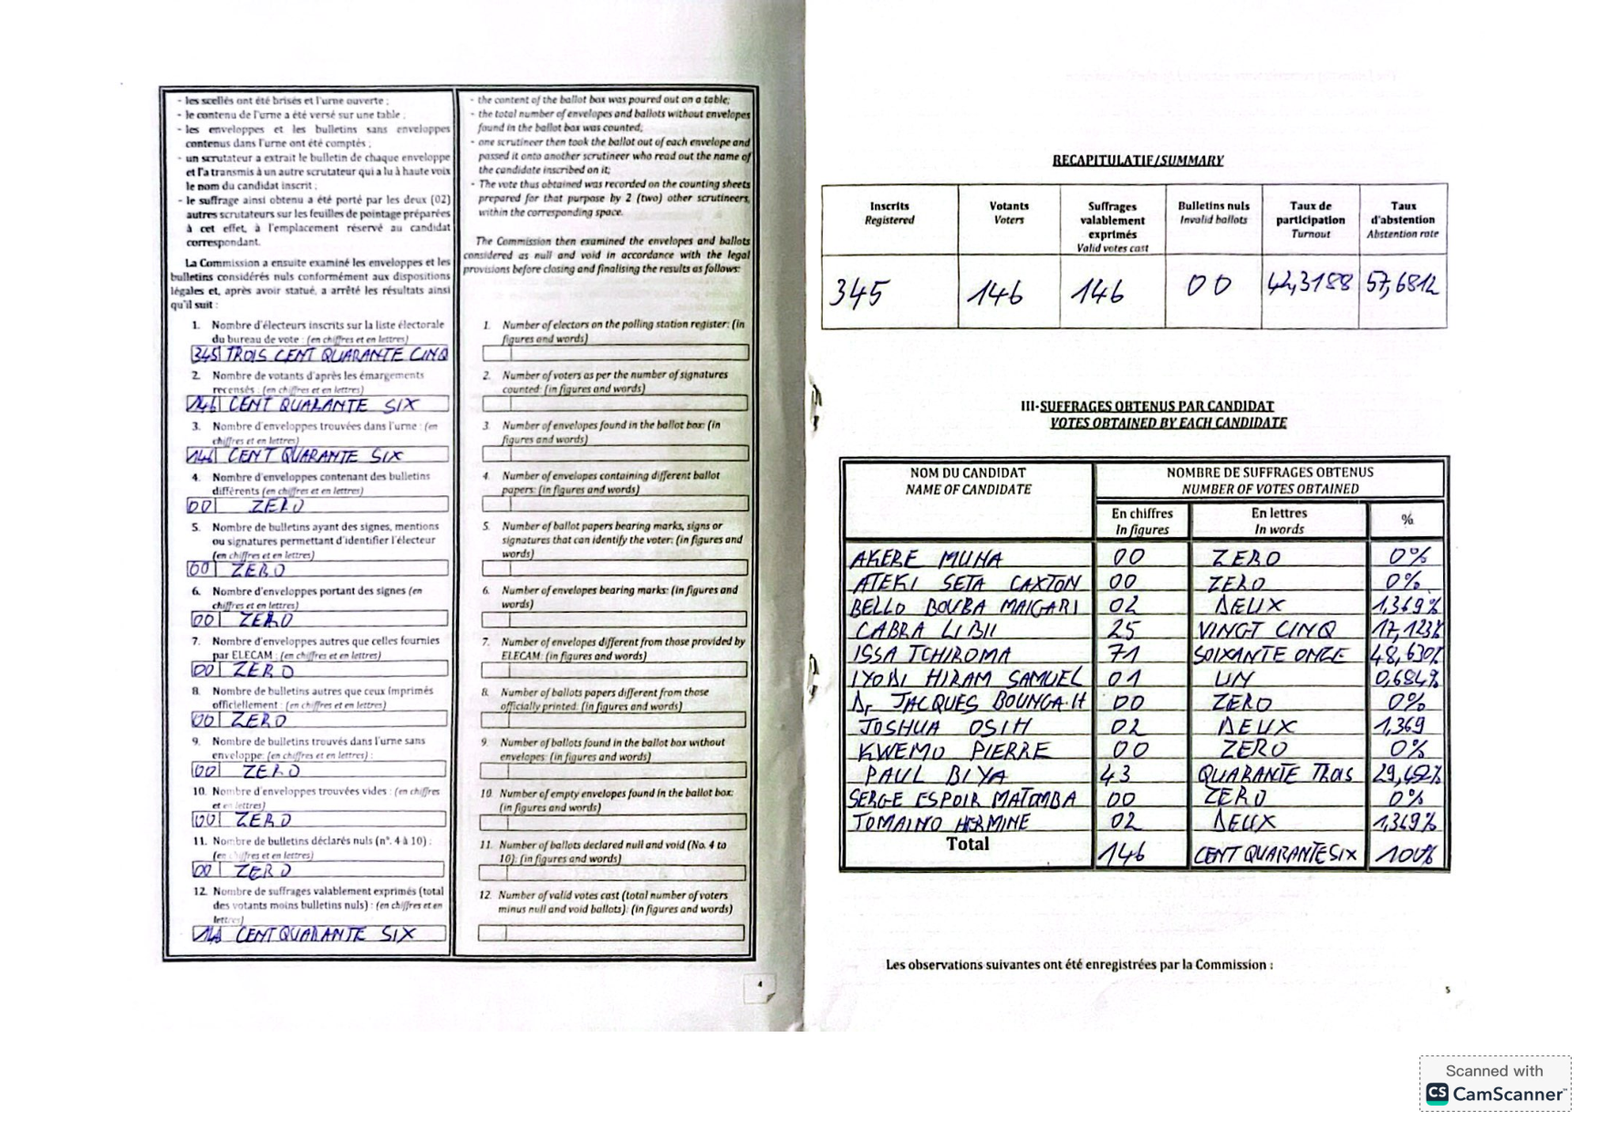 - les scellés ont été brisés et l'urne ouverte ;
- le contenu de l'urne a été versé sur une table ;
- les enveloppes et les bulletins sans enveloppes
contenus dans l'urne ont été comptés ;
- un scrutateur a extrait le bulletin de chaque enveloppe
et l'a transmis à un autre scrutateur qui a lu à haute voix
le nom du candidat inscrit ;
- le suffrage ainsi obtenu a été porté par les deux (02)
autres scrutateurs sur les feuilles de pointage préparées
à cet effet, à l'emplacement réservé au candidat
correspondant.
La Commission a ensuite examiné les enveloppes et les
bulletins considérés nuls conformément aux dispositions
légales et, après avoir statué, a arrêté les résultats ainsi
qu'il suit :
1. Nombre d'électeurs inscrits sur la liste électorale
du bureau de vote : (en chiffres et en lettres)
345 TROIS CENT QUARANTE CINQ
2. Nombre de votants d'après les émargements
recensés : (en chiffres et en lettres)
146 CENT QUARANTE SIX
3. Nombre d'enveloppes trouvées dans l'urne : (en
chiffres et en lettres)
146 CENT QUARANTE SIX
4. Nombre d'enveloppes contenant des bulletins
différents (en chiffres et en lettres)
00 ZERO
5. Nombre de bulletins ayant des signes, mentions
ou signatures permettant d'identifier l'électeur
(en chiffres et en lettres)
00 ZERO
6. Nombre d'enveloppes portant des signes (en
chiffres et en lettres)
00 ZERO
7. Nombre d'enveloppes autres que celles fournies
par ELECAM : (en chiffres et en lettres)
00 ZERO
8. Nombre de bulletins autres que ceux imprimés
officiellement : (en chiffres et en lettres)
00 ZERO
9. Nombre de bulletins trouvés dans l'urne sans
enveloppe: (en chiffres et en lettres) :
00 ZERO
10. Nombre d'enveloppes trouvées vides : (en chiffres
et en lettres)
00 ZERO
11. Nombre de bulletins déclarés nuls (n°. 4 à 10) :
(en chiffres et en lettres)
00 ZERO
12. Nombre de suffrages valablement exprimés (total
des votants moins bulletins nuls) : (en chiffres et en
lettres)
146 CENT QUARANTE SIX
- the content of the ballot box was poured out on a table;
- the total number of envelopes and ballots without envelopes
found in the ballot box was counted;
- one scrutineer then took the ballot out of each envelope and
passed it onto another scrutineer who read out the name of
the candidate inscribed on it;
- The vote thus obtained was recorded on the counting sheets
prepared for that purpose by 2 (two) other scrutineers,
within the corresponding space.
The Commission then examined the envelopes and ballots
considered as null and void in accordance with the legal
provisions before closing and finalising the results as follows:
1. Number of electors on the polling station register: (in
figures and words)
2. Number of voters as per the number of signatures
counted: (in figures and words)
3. Number of envelopes found in the ballot box: (in
figures and words)
4. Number of envelopes containing different ballot
papers: (in figures and words)
5. Number of ballot papers bearing marks, signs or
signatures that can identify the voter: (in figures and
words)
6. Number of envelopes bearing marks: (in figures and
words)
7. Number of envelopes different from those provided by
ELECAM: (in figures and words)
8. Number of ballots papers different from those
officially printed: (in figures and words)
9. Number of ballots found in the ballot box without
envelopes: (in figures and words)
10. Number of empty envelopes found in the ballot box:
(in figures and words)
11. Number of ballots declared null and void (No. 4 to
10): (in figures and words)
12. Number of valid votes cast (total number of voters
minus null and void ballots): (in figures and words)
4
RECAPITULATIF/SUMMARY
Inscrits Registered Votants Voters Suffrages valablement exprimés Valid votes cast Bulletins nuls Invalid ballots Taux de participation Turnout Taux d'abstention Abstention rate
345 146 146 00 42,3188 57,6812
III-SUFFRAGES OBTENUS PAR CANDIDAT
VOTES OBTAINED BY EACH CANDIDATE
NOM DU CANDIDAT NOMBRE DE SUFFRAGES OBTENUS
NAME OF CANDIDATE NUMBER OF VOTES OBTAINED
En chiffres En lettres %
In figures In words
AKERE MUNA 00 ZERO 0%
ATEKI SETA CAXTON 00 ZERO 0%
BELLO BOUBA MAIGARI 02 DEUX 1,369%
CABRA LIBII 25 VINGT CINQ 17,123%
ISSA TCHIROMA 71 SOIXANTE ONZE 48,630%
IYODI HIRAM SAMUEL 01 UN 0,684%
Dr JACQUES BOUNGA.H 00 ZERO 0%
JOSHUA OSIH 02 DEUX 1,369
KWEMO PIERRE 00 ZERO 0%
PAUL BIYA 43 QUARANTE TROIS
SERGE ESPOIR MATOMBA 00 ZERO 0%
TOMAINO HERMINE 02 DEUX 1,369%
Total 146 CENT QUARANTE SIX 100%
Les observations suivantes ont été enregistrées par la Commission :
5
Scanned with
CS CamScanner